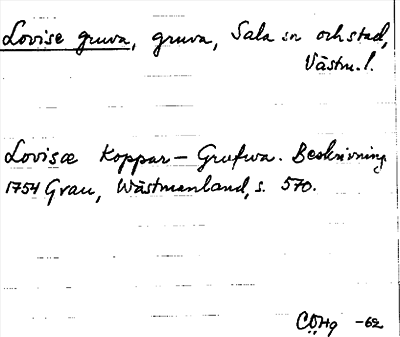 Lovise gruva, gruva, Sala sn och stad,
Västm.l.
Lovisæ Koppar-Grufwa. Beskrivning
1754 Grau, Wästmanland, s. 570.
CÖHg -62